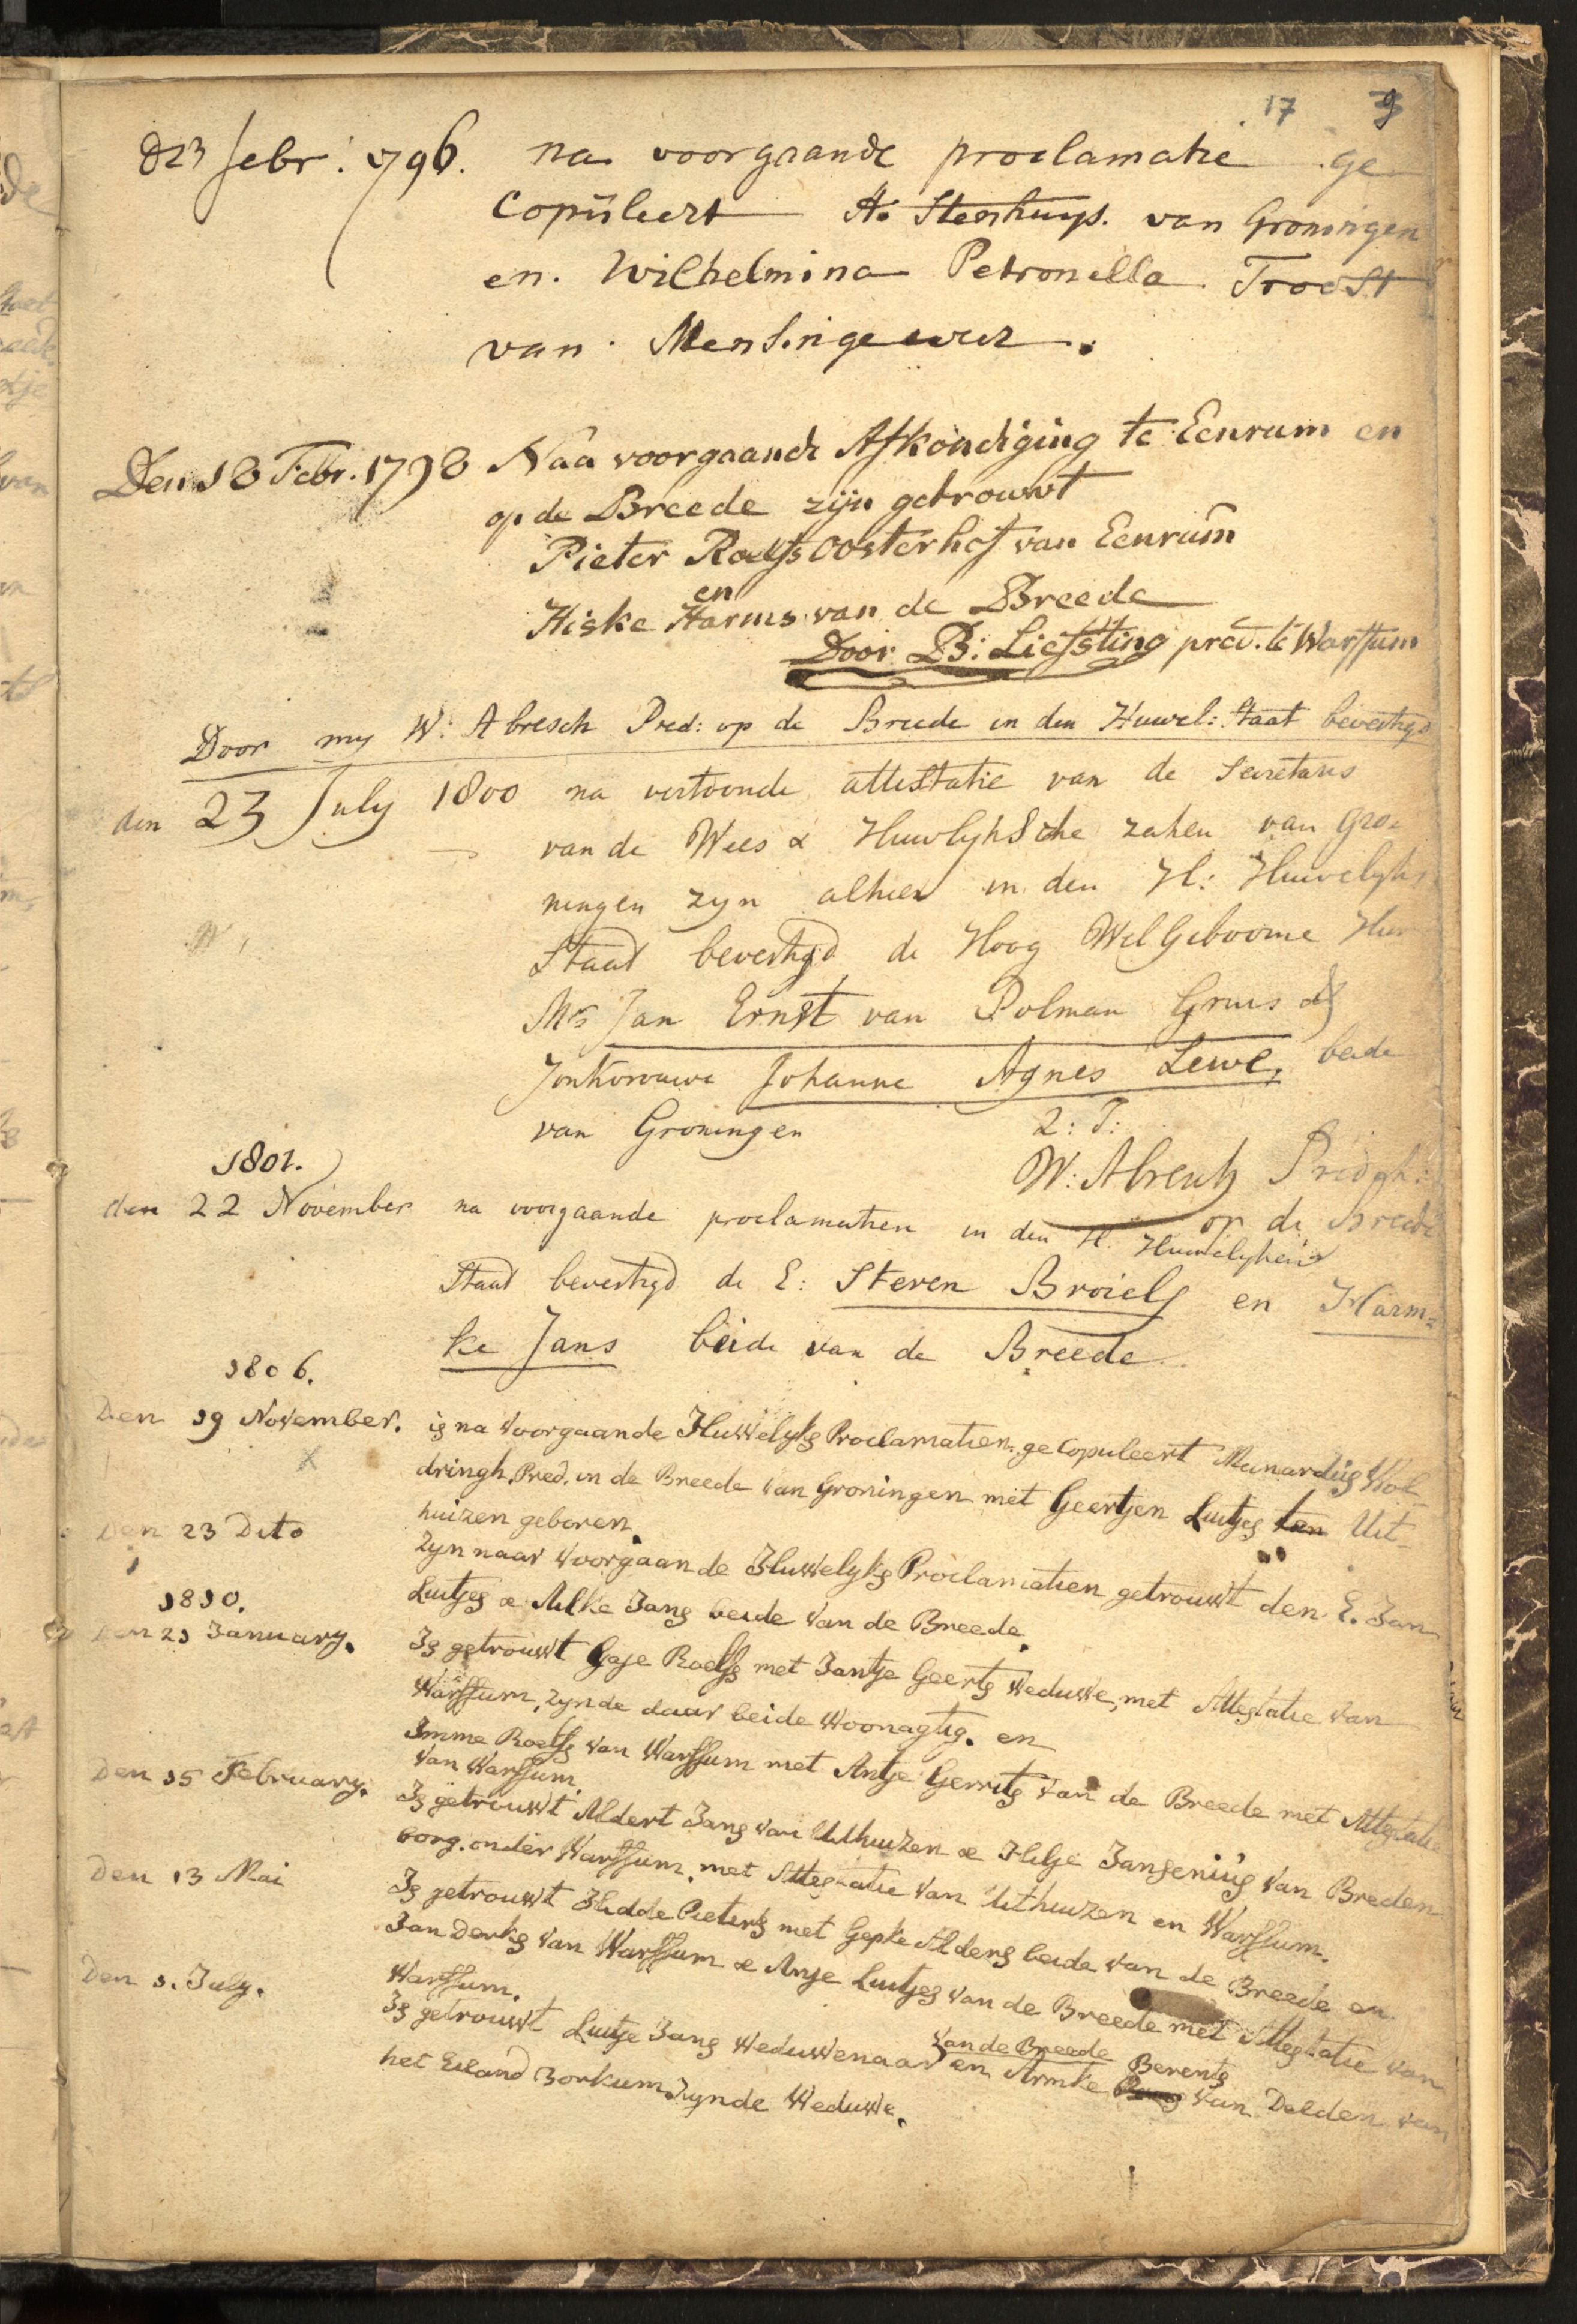 17 9
d 23 febr. 1796. na voorgaande proclamatie ge
copuleert A. Stenhuys. van Groningen
en. Wilhelmina Petronella Troost
van Mensingeweer.
Den 18 Febr. 1798 Naa voorgaande Afkondiging te Eenrum en
op de Breede zijn getrouwt
Pieter Roelfs Oosterhof van Eenrum
en
Hiske Harms van de Breede
Door B: Liefsting pred. te Warffum
Door my W: Abresch Pred: op de Breede in den Huwel: Staat bevestigd
den 23 July 1800 na vertoonde attestatie van de Secretaris
van de Wees & Huwlyksche zaken van Gro=
ningen zyn alhier in den H: Huwelyks
Staat bevestigd de Hoog Wel Geboorne Heer
Mr Jan Ernst van Polman Gruis &
Jonkvrouwe Johanne Agnes Lewe, beide
van Groningen
W: Abresch Pred
op de Breede
1801.
den 22 November na voorgaande proclamatien in den H. Huwelyken
Staat bevestigd de E: Steven Broiels en Harm=
ke Jans beide van de Breede
1806.
Den 19 November. is na voorgaande Huwelyks Proclamatien gecopuleert Meinardus Wol-
dringh, Pred. in de Breede van Groningen met Geertjen Luitjes ten Uit-
huizen geboren.
Den 23 Dito Zyn naar voorgaande Huwelyks Proclamatien getrouwt den E. Jan
Luitjes & Alke Jans beide van de Breede.
1810.
Den 21 January. Is getrouwt Geje Roelfs met Jantje Geerts Weduwe, met Attestatie van
Warffum, zynde daar beide woonagtig. en
Imme Roelfs van Warffum met Antje Gerrits van de Breede met Attestatie
van Warffum.
Den 15 February. Is getrouwt Aldert Jans van Uithuizen & Hilje Jansenius van Breden
borg. onder Warffum, met Attestatie van Uithuizen en Warffum.
Den 13 Mai Is getrouwt Hidde Pieters met Gepke Alders beide van de Breede en
Jan Derks van Warffum & Anje Luitjes van de Breede met Attestatie van
Warffum.
Den 1. July. Is getrouwt Luitje Jans Weduwenaar van de Breede en Armke Berents van Delden van
het Eiland Borkum zynde Weduwe.